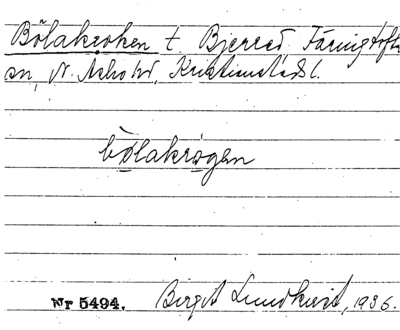 Bölakroken t. Bjerred, Färingtofta
sn, N. Åsbo hd, Kristianstads l.
bölakrogen
Nr 5494. Birgit Lundkvist, 1936.